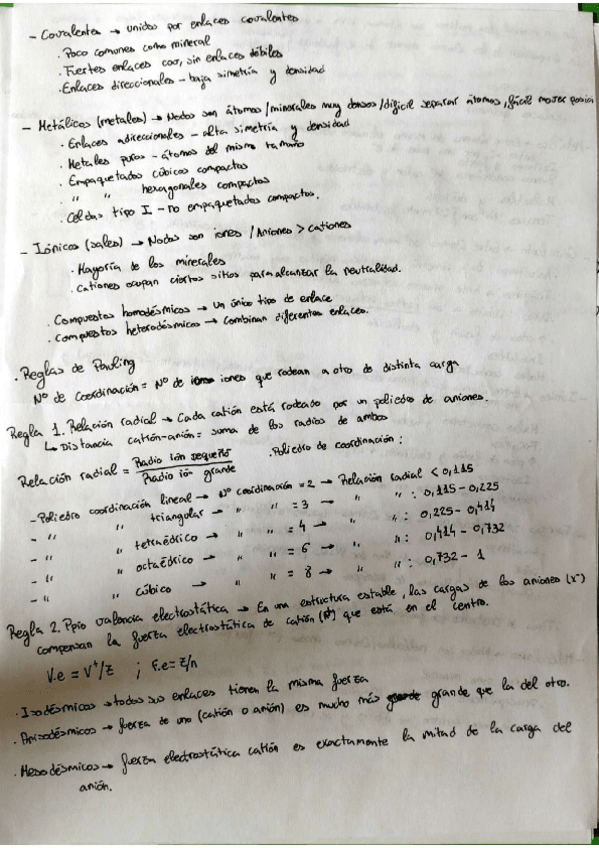 - Covalentes → unidos por enlaces covalentes
· Poco comunes como mineral
· Fuertes enlaces cov, sin enlaces débiles
· Enlaces direccionales - baja simetría y densidad
- Metálicos (metales) → Nodos son átomos / minerales muy densos / dificil separar átomos, fácil mover posición
· Enlaces adireccionales - alta simetría y densidad
· Metales puros - átomos del mismo tamaño
· Empaquetados cúbicos compactos
· " " hexagonales compactos
· Celdas tipo I - no empaquetados compactos.
- Iónicos (sales) → Nodos son iones / Aniones > cationes
· Mayoría de los minerales
· Cationes ocupan ciertos sitios para alcanzar la neutralidad.
· Compuestos homodésmicos → un único tipo de enlace
· Compuestos heterodésmicos → Combinan diferentes enlaces.
· Reglas de Pauling
Nº de Coordinación = Nº de iones que rodean a otro de distinta carga
Regla 1. Relación radial → Cada catión está rodeado por un poliedro de aniones.
↳ Distancia catión-anión = suma de los radios de ambos
Relación radial = Radio ión pequeño / Radio ión grande . Poliedro de coordinación:
- Poliedro coordinación lineal → Nº coordinación = 2 → Relación radial < 0,115
- " " triangular → " " = 3 → " " : 0,115 - 0,225
- " " tetraédrico → " " = 4 → " " : 0,225 - 0,414
- " " octaédrico → " " = 6 → " " : 0,414 - 0,732
- " " cúbico → " " = 8 → " " : 0,732 - 1
Regla 2. Ppio valencia electrostática → En una estructura estable, las cargas de los aniones (x⁻)
compensan la fuerza electrostática de catión que está en el centro.
V.e = V⁺/z ; F.e = z/n
· Isodésmicos → todos sus enlaces tienen la misma fuerza
· Anisodésmicos → fuerza de uno (catión o anión) es mucho más grande que la del otro.
· Mesodésmicos → fuerza electrostática catión es exactamente la mitad de la carga del
anión.